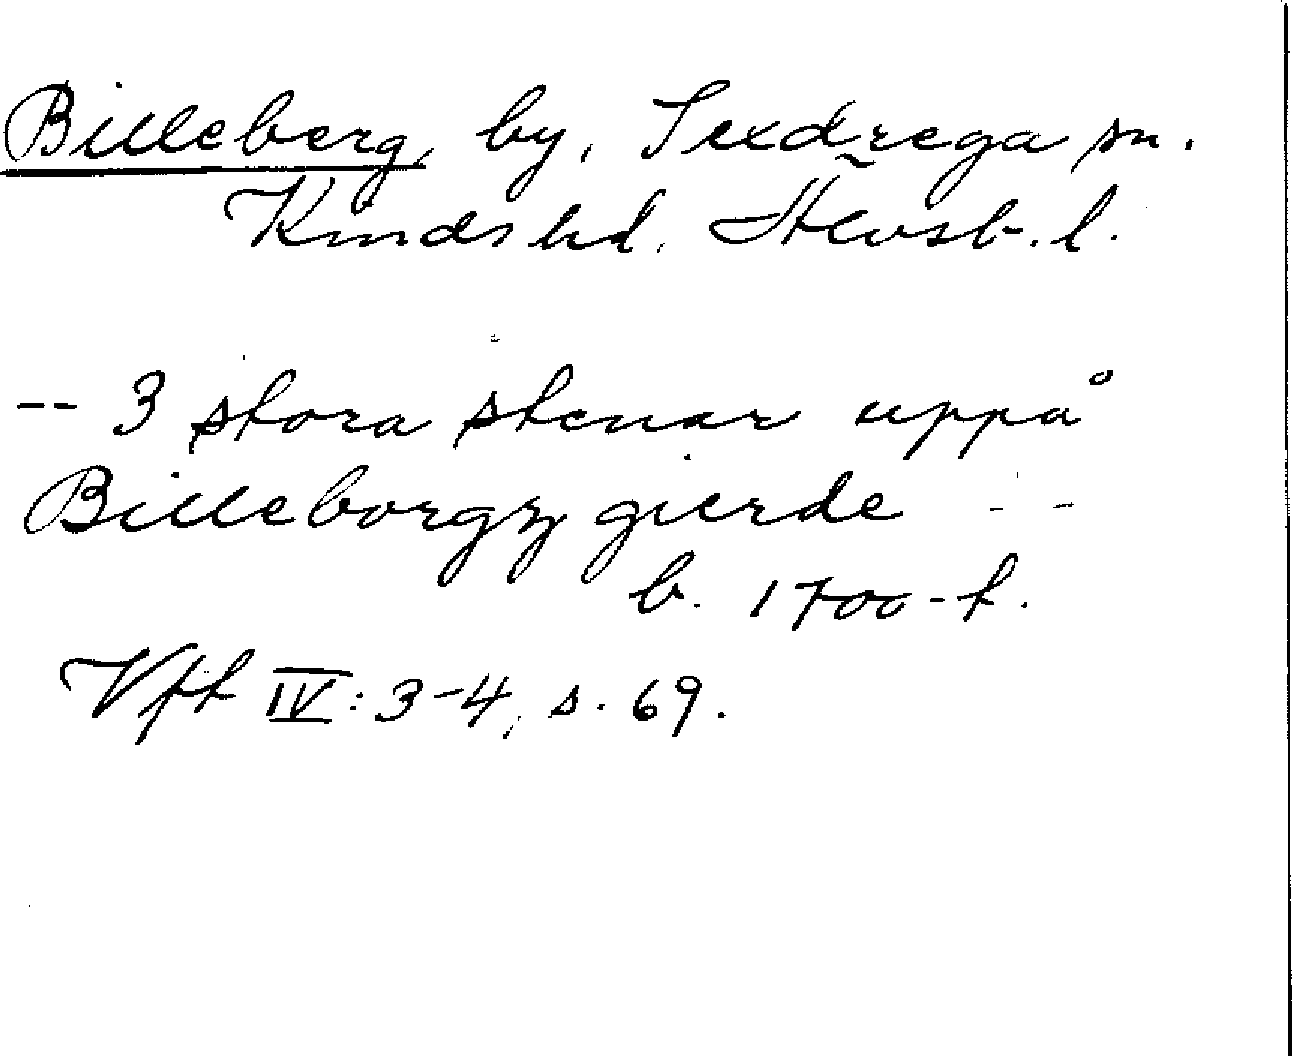 Billeberg, by, Sexdrega sn.
Kinds hd. Älvsb. l.
-- 3 stora stenar uppå
Billeborgz gierde --
b. 1700-t.
Vft IV: 3-4, s. 69.